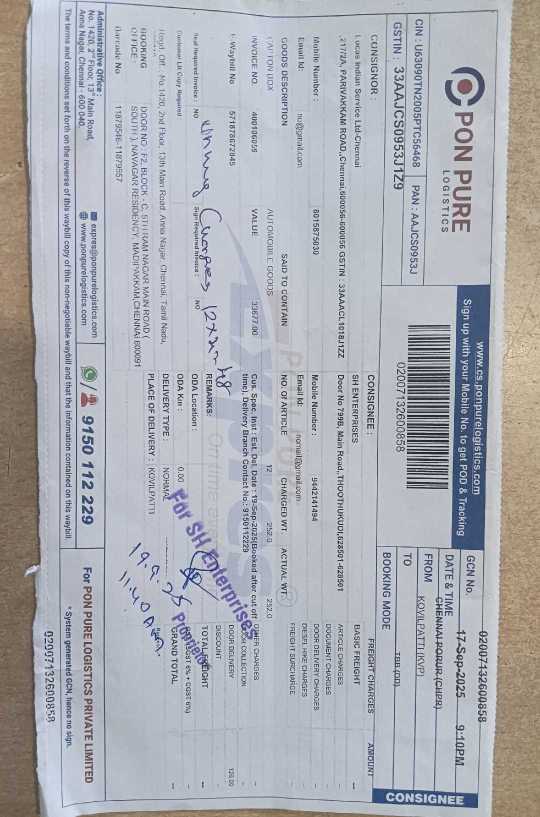 PON PURE
LOGISTICS
CIN : U63090TN2005PTC56468
PAN : AAJCS0953J
GSTIN : 33AAJCS0953J1Z9
www.cs.ponpurelogistics.com
Sign up with your Mobile No. to get POD & Tracking
02007132600858
GCN No. 02007132600858
DATE & TIME 17-Sep-2025 9:10PM
FROM CHENNAI PORUR (CHPR)
TO KOVILPATTI (KVP)
BOOKING MODE TBB (DD)
CONSIGNEE
CONSIGNOR :
Lucas Indian Service Ltd-Chennai
,217/2A, PARIVAKKAM ROAD,,Chennai,600056-600056 GSTIN : 33AAACL1018J1ZZ
Mobile Number : 8015875030
Email Id:
CONSIGNEE :
SH ENTERPRISES
Door No 799B, Main Road, THOOTHUKUDI,628501-628501
Mobile Number : 9442141494
Email Id: nomail@gmail.com
GOODS DESCRIPTION SAID TO CONTAIN NO. OF ARTICLE CHARGED WT. ACTUAL WT.
CARTON BOX AUTOMOBILE GOODS 12 252.0 252.0
INVOICE NO. 400106059 VALUE 33677.00
E-Waybill No 571878672845
Cus. Spec. Inst : Est. Del. Date : 19-Sep-2025(Booked after cut off
time), Delivery Branch Contact No.: 9150112229
Seal Required Invoice : NO Sign Required Invoice : NO
REMARKS:
Customer LR Copy Required
ODA Location :
ODA Km : 0.00
DELIVERY TYPE : NORMAL
PLACE OF DELIVERY : KOVILPATTI
Regd. Off : No.1420, 2nd Floor, 13th Main Road, Anna Nagar, Chennai, Tamil Nadu,
BOOKING OFFICE: DOOR NO : F2, BLOCK - C, 5TH RAM NAGAR MAIN ROAD (
SOUTH ), NAVAGAR RESIDENCY, MADIPAKKAM,CHENNAI 600091
Barcode No 11879546-11879557
FREIGHT CHARGES AMOUNT
BASIC FREIGHT --
ARTICLE CHARGES --
DOCUMENT CHARGES --
DOOR DELIVERY CHARGES --
DIESEL HIKE CHARGES --
FREIGHT SURCHARGE --
OTHER CHARGES --
DOOR COLLECTION --
DOOR DELIVERY
DISCOUNT --
TOTAL FREIGHT --
GRAND TOTAL --
For SH Enterprises
19.9.25
Administrative Office :
No. 1420, 2nd Floor, 13th Main Road,
Anna Nagar, Chennai - 600 040.
expres@ponpurelogistics.com
www.ponpurelogistics.com
9150 112 229
For PON PURE LOGISTICS PRIVATE LIMITED
The terms and conditions set forth on the reverse of this waybill copy of this non-negotiable waybill and that the information contained on this waybill.
* System generated GCN, hence no sign.
02007132600858